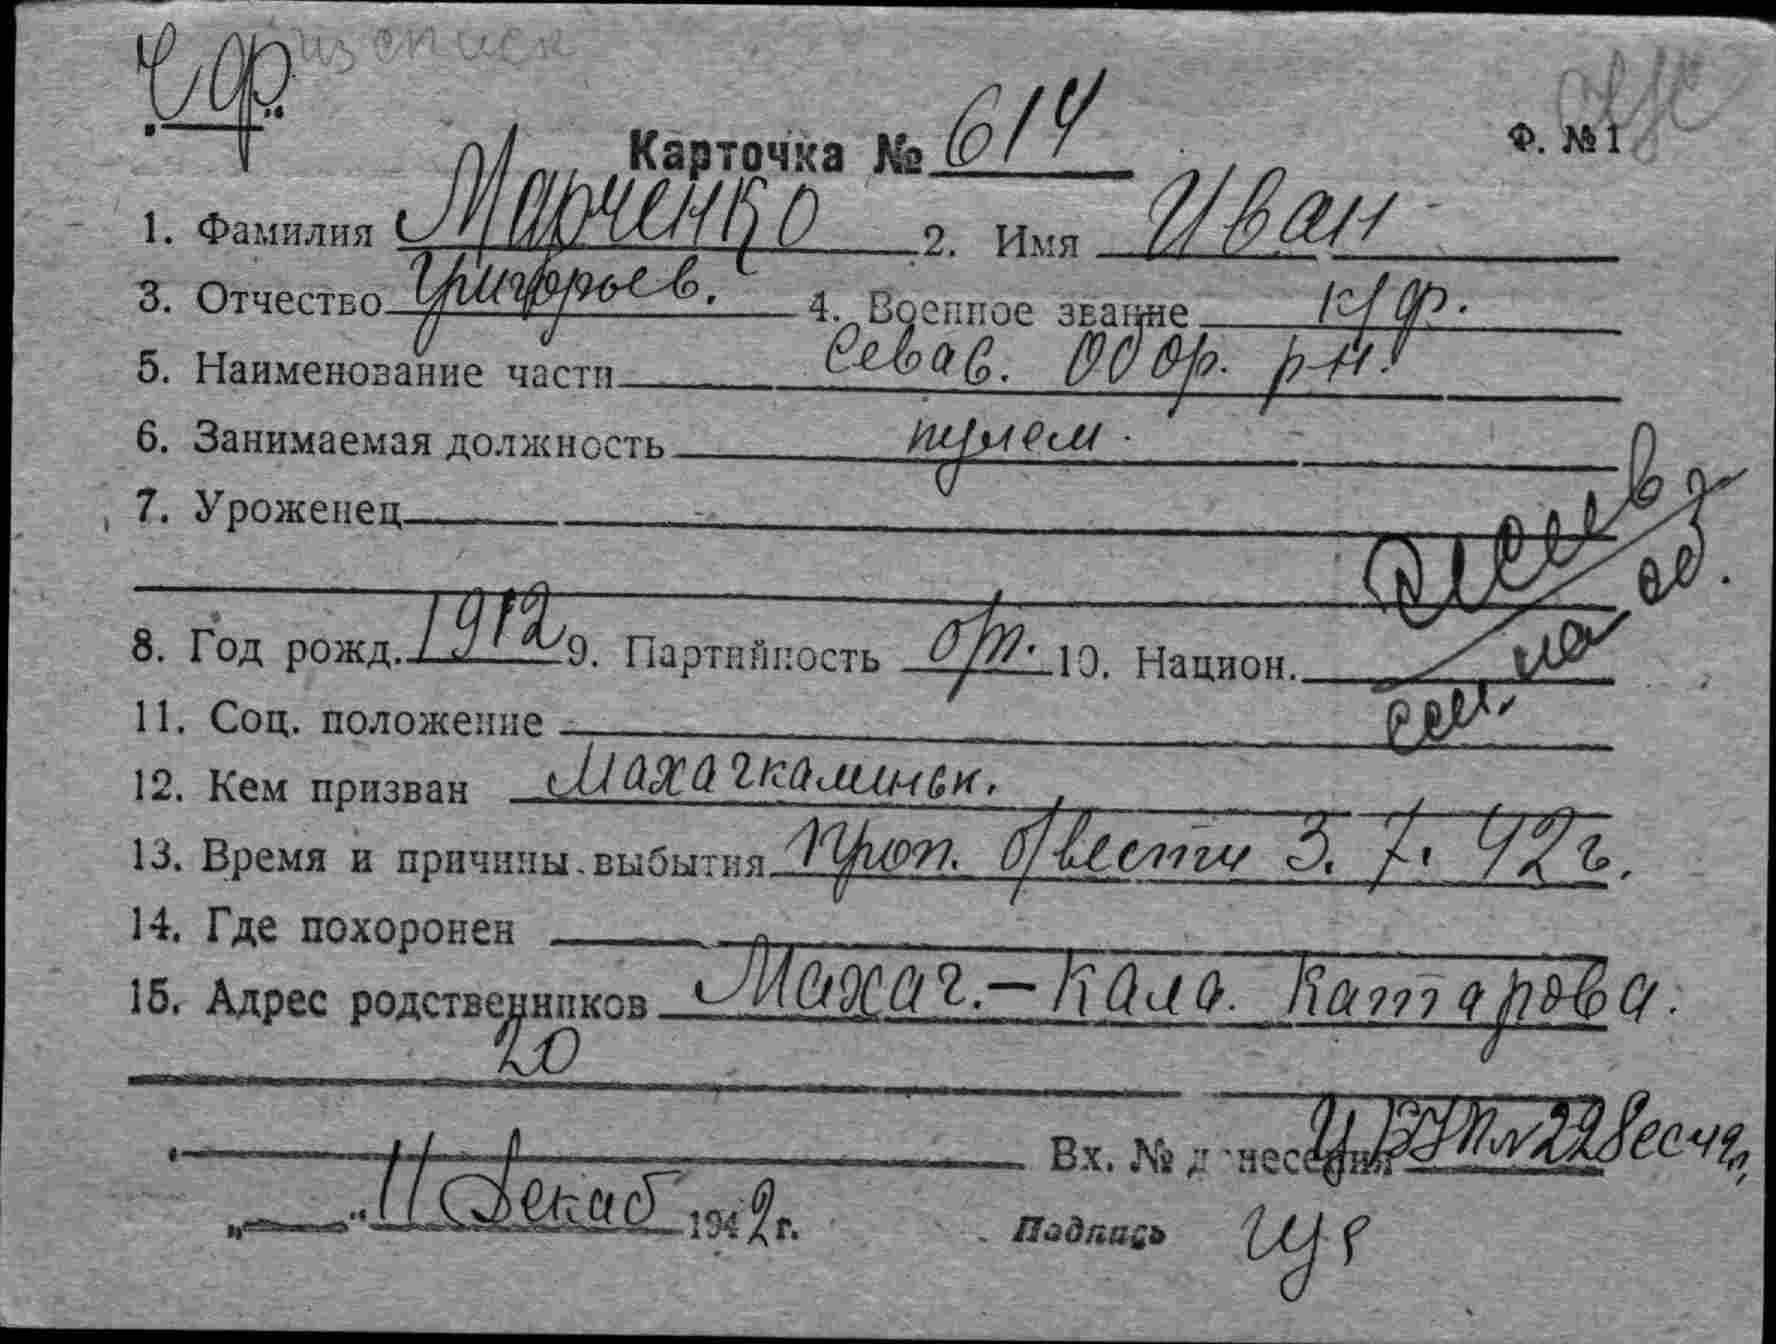 ЧФ из списк
Карточка № 614 Ф. № 1
1. Фамилия Марченко 2. Имя Иван
3. Отчество Григорьев. 4. Военное звание к/ф.
5. Наименование части Севас. Обор. р-н.
6. Занимаемая должность пулем.
7. Уроженец
8. Год рожд. 1912 9. Партийность 10. Национ.
11. Соц. положение
12. Кем призван Махачкалинск.
13. Время и причины выбытия Проп. б/вести 3. 7. 42 г.
14. Где похоронен
15. Адрес родственников Махач.-Кала. Катарова.
20
Вх. № донесения
„ “ 11 Декаб 1942 г. Подпись